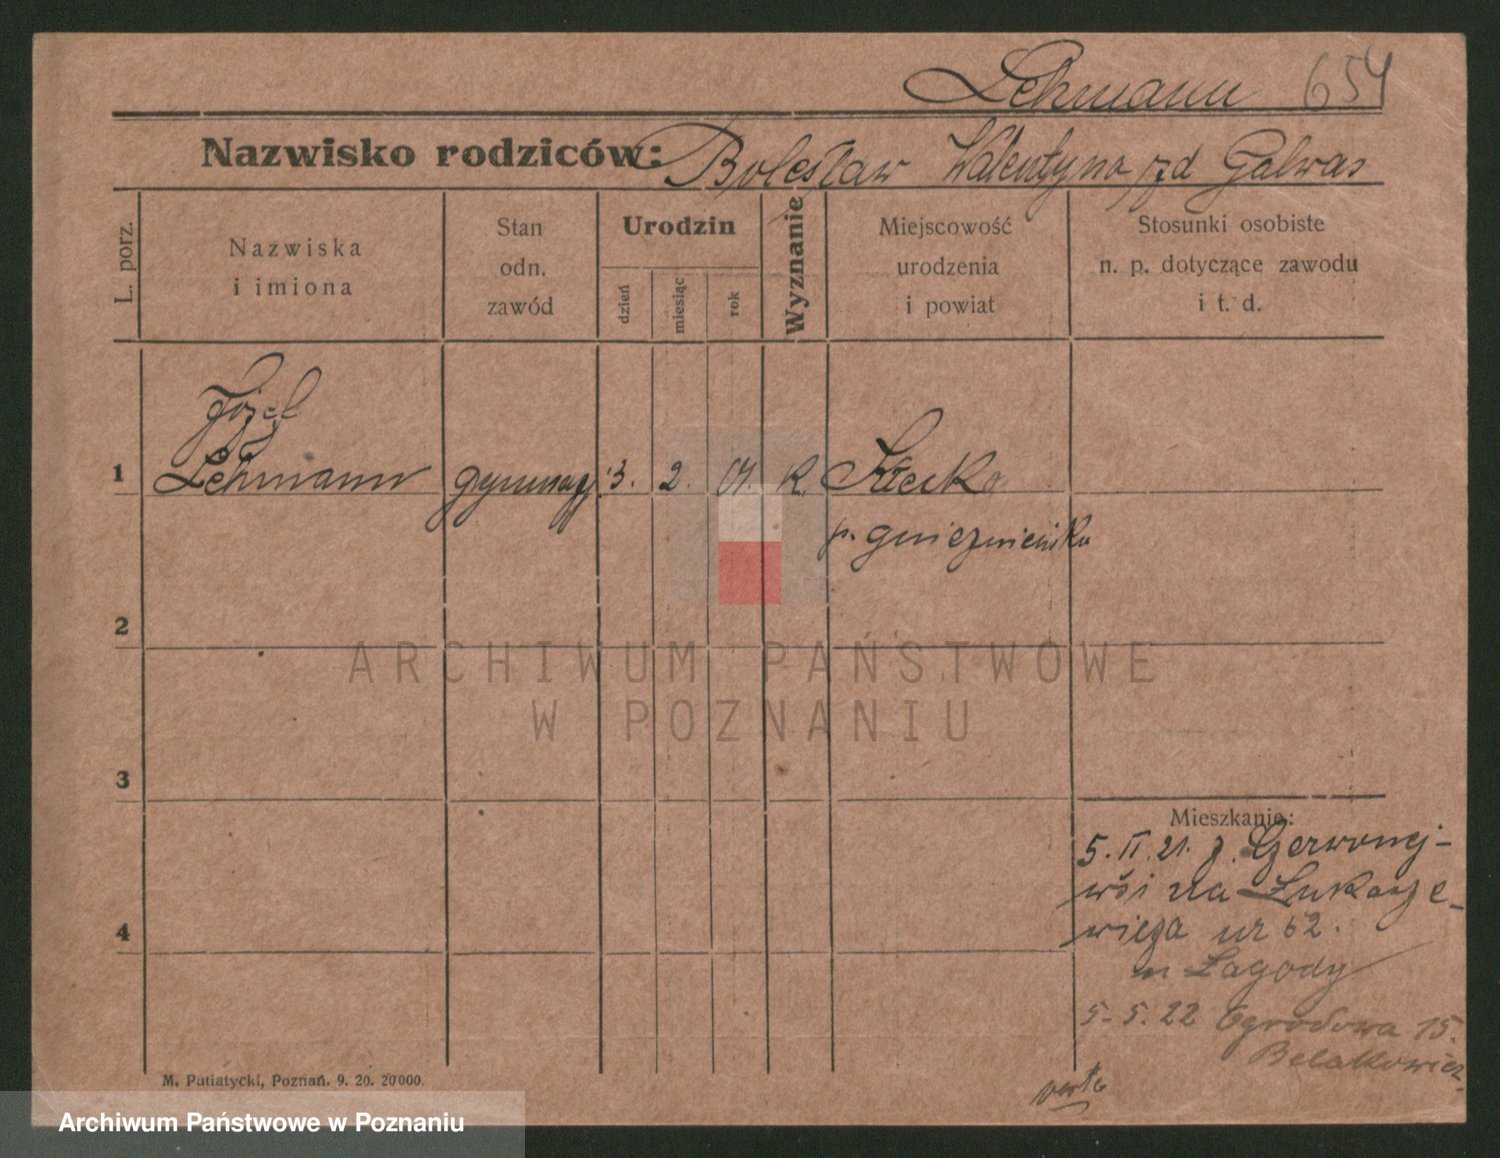 Lehmann 654
Nazwisko rodziców: Bolesław Walentyna zd Galwas
L. porz.
Nazwiska
i imiona
Stan
odn.
zawód
Urodzin
dzień
miesiąc
rok
Wyznanie
Miejscowość
urodzenia
i powiat
Stosunki osobiste
n. p. dotyczące zawodu
i t. d.
Józef
1 Lehmann gymnazj 13. 2. 01. K. Kłecko
p. gnieznieński
2
ARCHIWUM PAŃSTWOWE
W POZNANIU
3
Mieszkanie:
5. II. 21. z Czerwonej-
wsi na Łukasze-
4 wicza nr 62.
u Łagody
5. 5. 22 Ogrodowa 15.
verte
M. Putiatycki, Poznań. 9. 20. 20000.
Archiwum Państwowe w Poznaniu